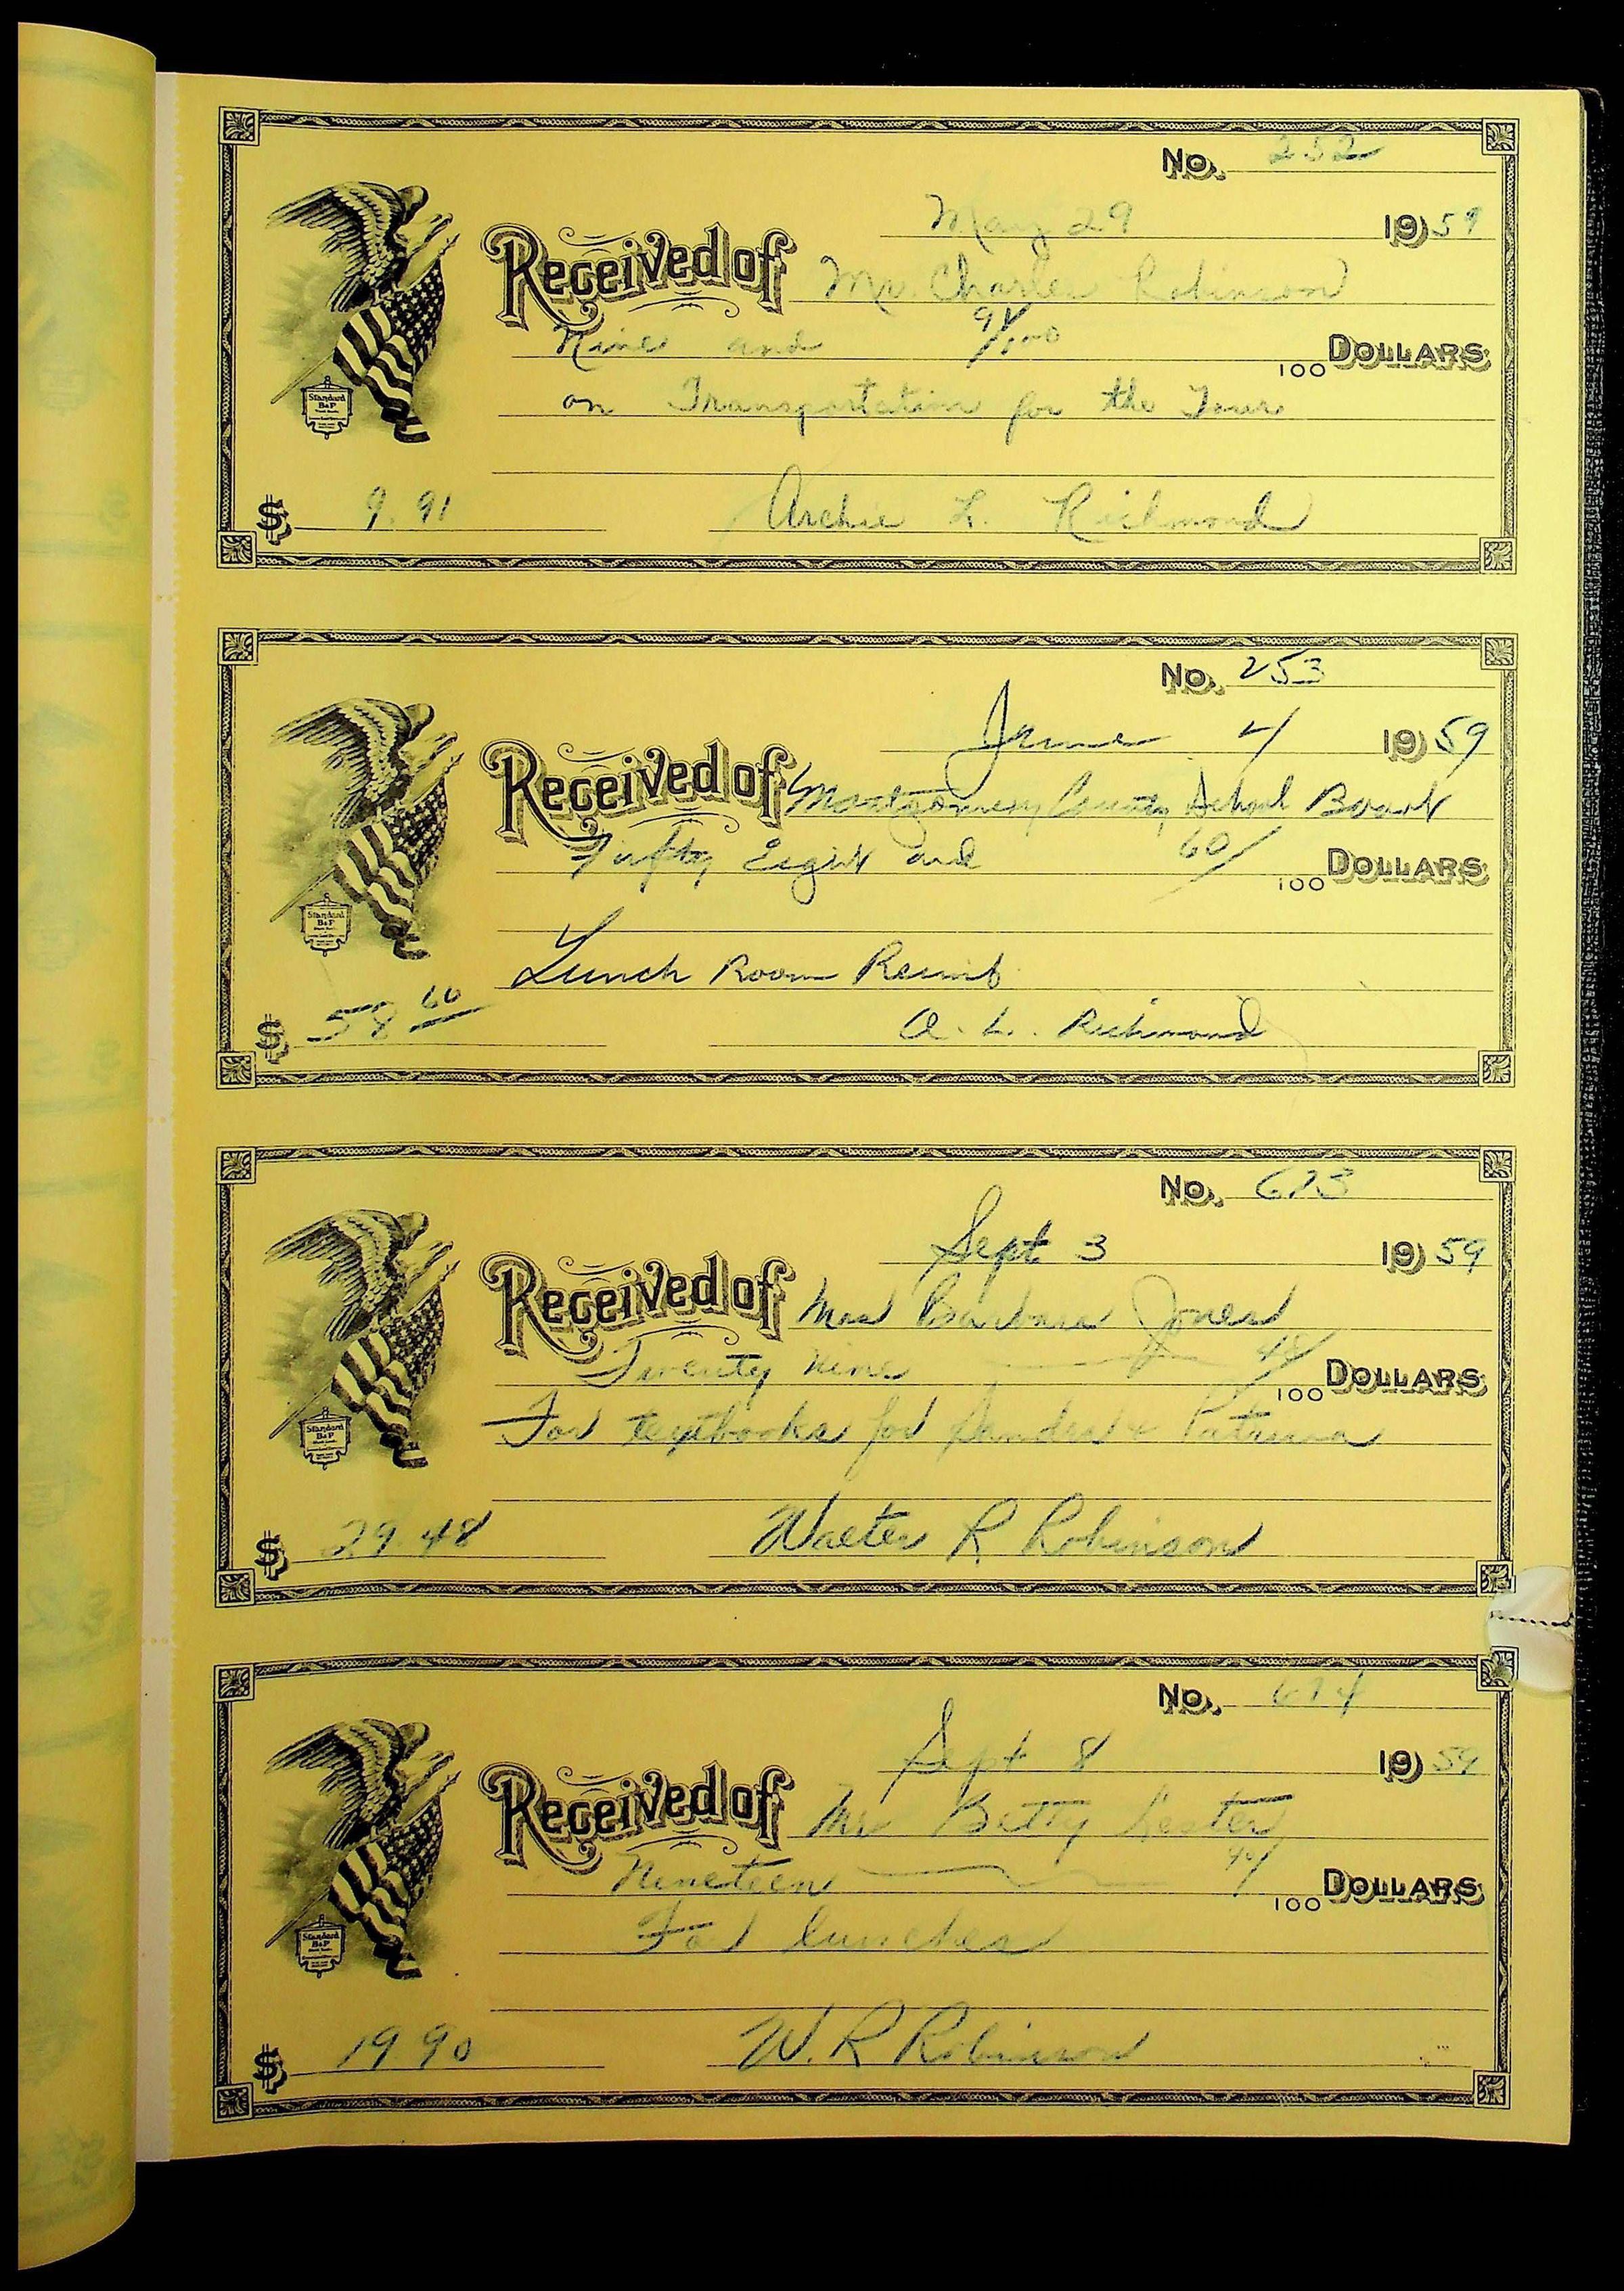 No. 252
May 29 1959
Received of Mr. Charles Robinson
Nine and 91/100 100 DOLLARS
on Transportation for the Tour
Standard B&P
$ 9.91 Archie L. Richmond
No. 253
June 4 1959
Received of Montgomery County School Board
Fifty Eight and 60/100 DOLLARS
Standard B&P
Lunch Room Reimb
$ 58 60 A. L. Richmond
No. 673
Sept 3 1959
Received of Mrs Barbara Jones
Twenty Nine 48/100 DOLLARS
For textbooks for Sandra & Patricia
Standard B&P
$ 29.48 Walter R Robinson
No. 674
Sept 8 1959
Received of Betty Lester
Nineteen 90/100 DOLLARS
For lunches
Standard B&P
$ 19 90 W. R Robinson